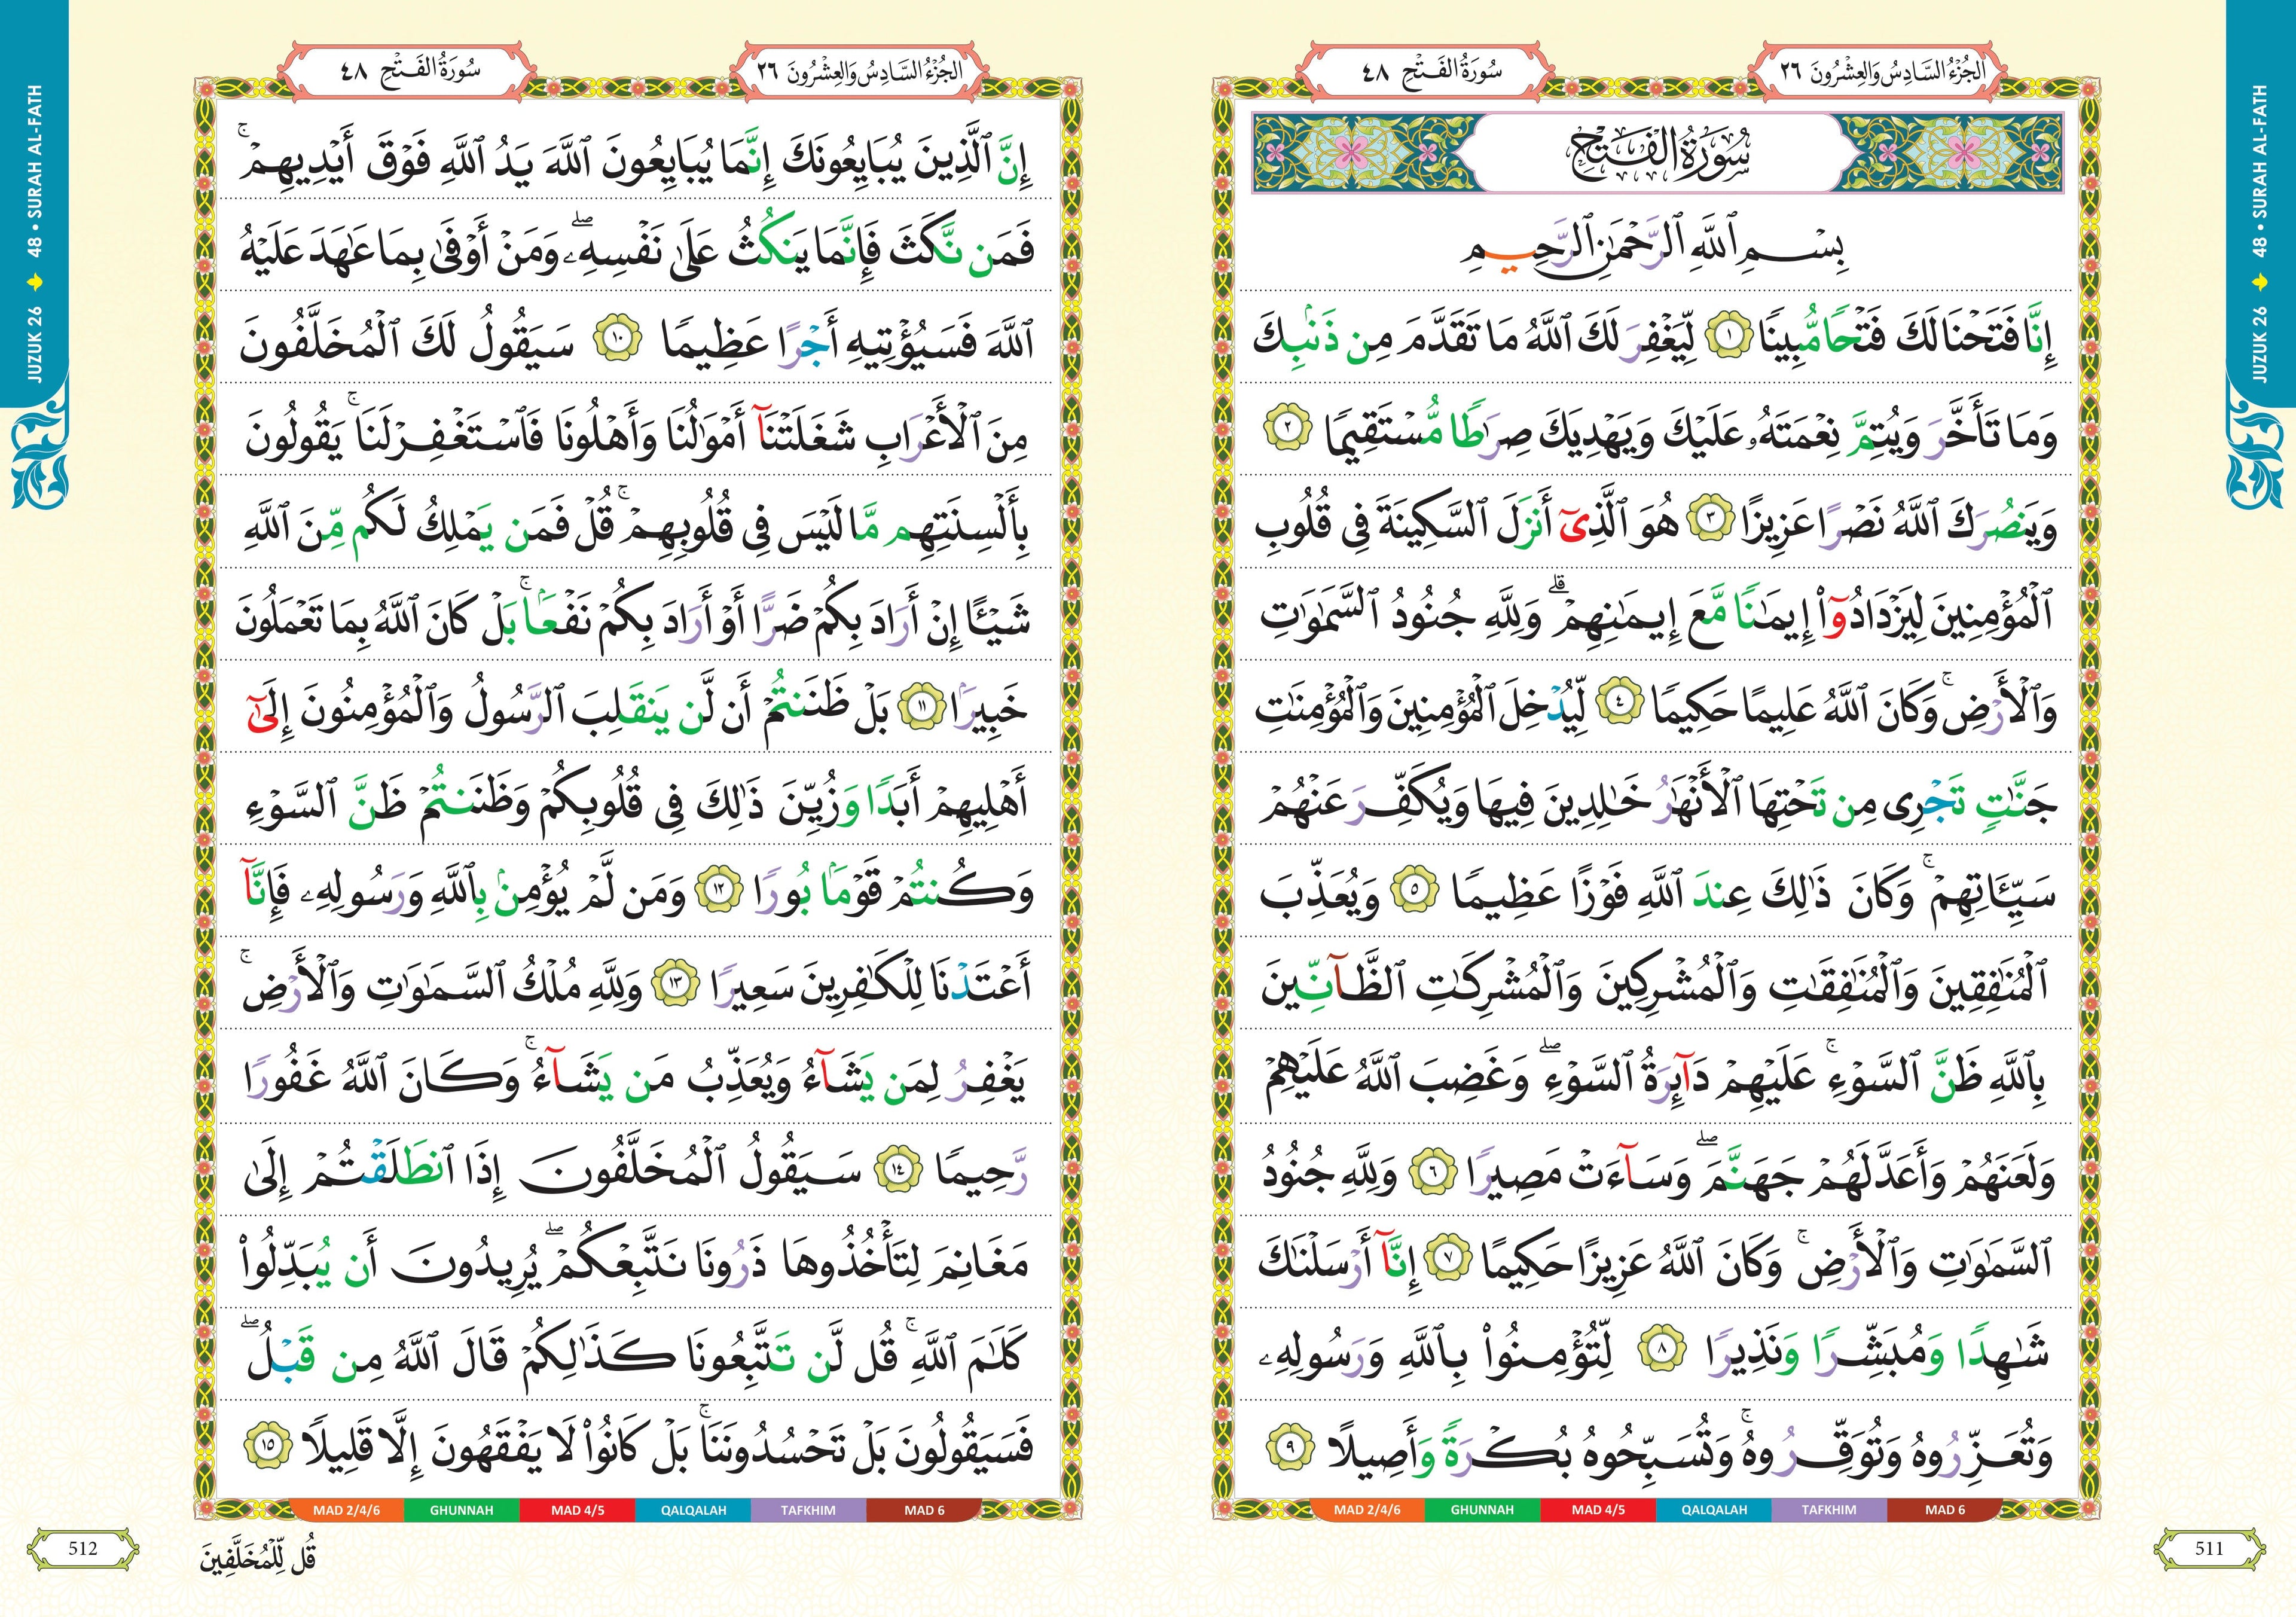 الجُزْءُ السَّادِسُ وَالعِشْرُونَ ٢٦
سُورَةُ الفَتْحِ ٤٨
سُورَةُ الفَتْحِ
بِسْمِ ٱللَّهِ ٱلرَّحْمَٰنِ ٱلرَّحِيمِ
إِنَّا فَتَحْنَا لَكَ فَتْحًا مُّبِينًا ١ لِّيَغْفِرَ لَكَ ٱللَّهُ مَا تَقَدَّمَ مِن ذَنۢبِكَ
وَمَا تَأَخَّرَ وَيُتِمَّ نِعْمَتَهُۥ عَلَيْكَ وَيَهْدِيَكَ صِرَٰطًا مُّسْتَقِيمًا ٢
وَيَنصُرَكَ ٱللَّهُ نَصْرًا عَزِيزًا ٣ هُوَ ٱلَّذِىٓ أَنزَلَ ٱلسَّكِينَةَ فِى قُلُوبِ
ٱلْمُؤْمِنِينَ لِيَزْدَادُوٓا۟ إِيمَٰنًا مَّعَ إِيمَٰنِهِمْ ۗ وَلِلَّهِ جُنُودُ ٱلسَّمَٰوَٰتِ
وَٱلْأَرْضِ ۚ وَكَانَ ٱللَّهُ عَلِيمًا حَكِيمًا ٤ لِّيُدْخِلَ ٱلْمُؤْمِنِينَ وَٱلْمُؤْمِنَٰتِ
جَنَّٰتٍ تَجْرِى مِن تَحْتِهَا ٱلْأَنْهَٰرُ خَٰلِدِينَ فِيهَا وَيُكَفِّرَ عَنْهُمْ
سَيِّـَٔاتِهِمْ ۚ وَكَانَ ذَٰلِكَ عِندَ ٱللَّهِ فَوْزًا عَظِيمًا ٥ وَيُعَذِّبَ
ٱلْمُنَٰفِقِينَ وَٱلْمُنَٰفِقَٰتِ وَٱلْمُشْرِكِينَ وَٱلْمُشْرِكَٰتِ ٱلظَّآنِّينَ
بِٱللَّهِ ظَنَّ ٱلسَّوْءِ ۚ عَلَيْهِمْ دَآئِرَةُ ٱلسَّوْءِ ۖ وَغَضِبَ ٱللَّهُ عَلَيْهِمْ
وَلَعَنَهُمْ وَأَعَدَّ لَهُمْ جَهَنَّمَ ۖ وَسَآءَتْ مَصِيرًا ٦ وَلِلَّهِ جُنُودُ
ٱلسَّمَٰوَٰتِ وَٱلْأَرْضِ ۚ وَكَانَ ٱللَّهُ عَزِيزًا حَكِيمًا ٧ إِنَّآ أَرْسَلْنَٰكَ
شَٰهِدًا وَمُبَشِّرًا وَنَذِيرًا ٨ لِّتُؤْمِنُوا۟ بِٱللَّهِ وَرَسُولِهِۦ
وَتُعَزِّرُوهُ وَتُوَقِّرُوهُ ۚ وَتُسَبِّحُوهُ بُكْرَةً وَأَصِيلًا ٩
MAD 2/4/6 GHUNNAH MAD 4/5 QALQALAH TAFKHIM MAD 6
511
JUZUK 26 48 • SURAH AL-FATH
الجُزْءُ السَّادِسُ وَالعِشْرُونَ ٢٦
سُورَةُ الفَتْحِ ٤٨
إِنَّ ٱلَّذِينَ يُبَايِعُونَكَ إِنَّمَا يُبَايِعُونَ ٱللَّهَ يَدُ ٱللَّهِ فَوْقَ أَيْدِيهِمْ ۚ
فَمَن نَّكَثَ فَإِنَّمَا يَنكُثُ عَلَىٰ نَفْسِهِۦ ۖ وَمَنْ أَوْفَىٰ بِمَا عَٰهَدَ عَلَيْهُ
ٱللَّهَ فَسَيُؤْتِيهِ أَجْرًا عَظِيمًا ١٠ سَيَقُولُ لَكَ ٱلْمُخَلَّفُونَ
مِنَ ٱلْأَعْرَابِ شَغَلَتْنَآ أَمْوَٰلُنَا وَأَهْلُونَا فَٱسْتَغْفِرْ لَنَا ۚ يَقُولُونَ
بِأَلْسِنَتِهِم مَّا لَيْسَ فِى قُلُوبِهِمْ ۚ قُلْ فَمَن يَمْلِكُ لَكُم مِّنَ ٱللَّهِ
شَيْـًٔا إِنْ أَرَادَ بِكُمْ ضَرًّا أَوْ أَرَادَ بِكُمْ نَفْعًۢا ۚ بَلْ كَانَ ٱللَّهُ بِمَا تَعْمَلُونَ
خَبِيرًۢا ١١ بَلْ ظَنَنتُمْ أَن لَّن يَنقَلِبَ ٱلرَّسُولُ وَٱلْمُؤْمِنُونَ إِلَىٰٓ
أَهْلِيهِمْ أَبَدًا وَزُيِّنَ ذَٰلِكَ فِى قُلُوبِكُمْ وَظَنَنتُمْ ظَنَّ ٱلسَّوْءِ
وَكُنتُمْ قَوْمًۢا بُورًا ١٢ وَمَن لَّمْ يُؤْمِنۢ بِٱللَّهِ وَرَسُولِهِۦ فَإِنَّآ
أَعْتَدْنَا لِلْكَٰفِرِينَ سَعِيرًا ١٣ وَلِلَّهِ مُلْكُ ٱلسَّمَٰوَٰتِ وَٱلْأَرْضِ ۚ
يَغْفِرُ لِمَن يَشَآءُ وَيُعَذِّبُ مَن يَشَآءُ ۚ وَكَانَ ٱللَّهُ غَفُورًا
رَّحِيمًا ١٤ سَيَقُولُ ٱلْمُخَلَّفُونَ إِذَا ٱنطَلَقْتُمْ إِلَىٰ
مَغَانِمَ لِتَأْخُذُوهَا ذَرُونَا نَتَّبِعْكُمْ ۖ يُرِيدُونَ أَن يُبَدِّلُوا۟
كَلَٰمَ ٱللَّهِ ۚ قُل لَّن تَتَّبِعُونَا كَذَٰلِكُمْ قَالَ ٱللَّهُ مِن قَبْلُ ۖ
فَسَيَقُولُونَ بَلْ تَحْسُدُونَنَا ۚ بَلْ كَانُوا۟ لَا يَفْقَهُونَ إِلَّا قَلِيلًا ١٥
MAD 2/4/6 GHUNNAH MAD 4/5 QALQALAH TAFKHIM MAD 6
قُل لِّلْمُخَلَّفِينَ
512
JUZUK 26 48 • SURAH AL-FATH